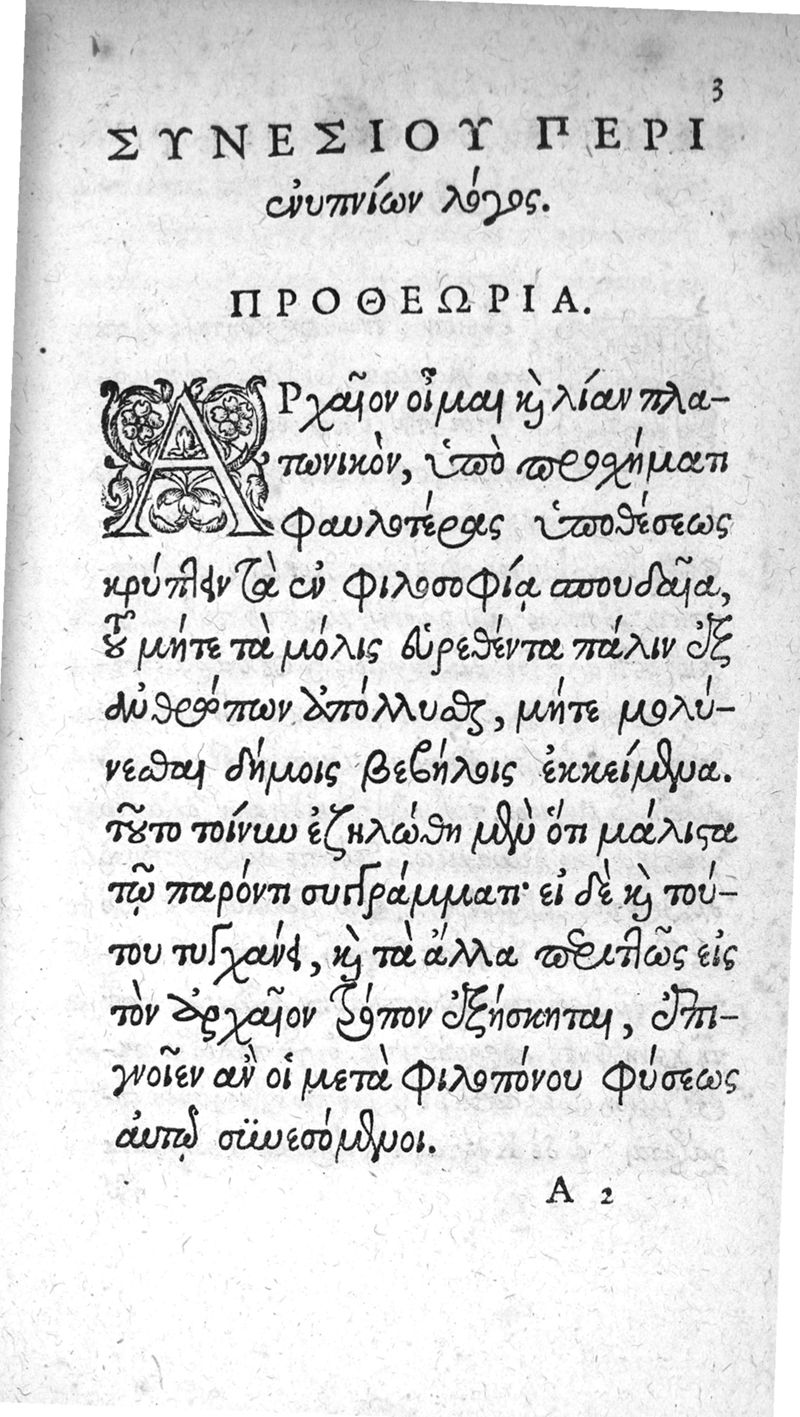 3
ΣΥΝΕΣΙΟΥ ΠΕΡΙ
ἐνυπνίων λόγος.
ΠΡΟΘΕΩΡΙΑ.
ΑΡχαῖον οἶμαι καὶ λίαν πλα-
τωνικὸν, ὑπὸ προσχήματι
φαυλοτέρας ὑποθέσεως
κρύπτειν τὰ ἐν φιλοσοφίᾳ σπουδαῖα,
τοῦ μήτε τὰ μόλις εὑρεθέντα πάλιν ἐξ
ἀνθρώπων ἀπόλλυσθαι, μήτε μολύ-
νεσθαι δήμοις βεβήλοις ἐκκείμενα.
τοῦτο τοίνυν ἐζηλώθη μὲν ὅτι μάλιστα
τῷ παρόντι συγγράμματι· εἰ δὲ καὶ τού-
του τυγχάνει, καὶ τὰ ἄλλα περιττῶς εἰς
τὸν ἀρχαῖον τρόπον ἐξήσκηται, ἐπι-
γνοῖεν ἂν οἱ μετὰ φιλοπόνου φύσεως
αὐτῷ συνεσόμενοι.
A 2